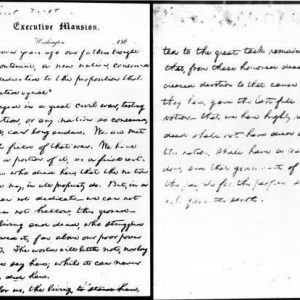 Executive Mansion,
Washington, 186
years ago our fathers brought
continent, a new nation, conceived
dedicated to the proposition that
equal"
engaged in a great civil war, testing
nation, or any nation so conceived,
can long endure. We are met
field of that war. We have
a portion of it, as a final rest
who died here, that the nation
This we may, in all propriety do. But, in a
we can not dedicate we can not
can not hallow, this ground
living and dead, who struggled
it, far above our poor power
The world will little note, nor long
we say here; while it can never
did here.
for us, the living, to stand here,
ted to the great task remaining
that, from these honored dead
creased devotion to that cause
they here, gave the last full measure
votion that we here highly resolve
dead shall not have died
the nation, shall have a new
dom, and that government of
the people for the people
not perish from the earth.